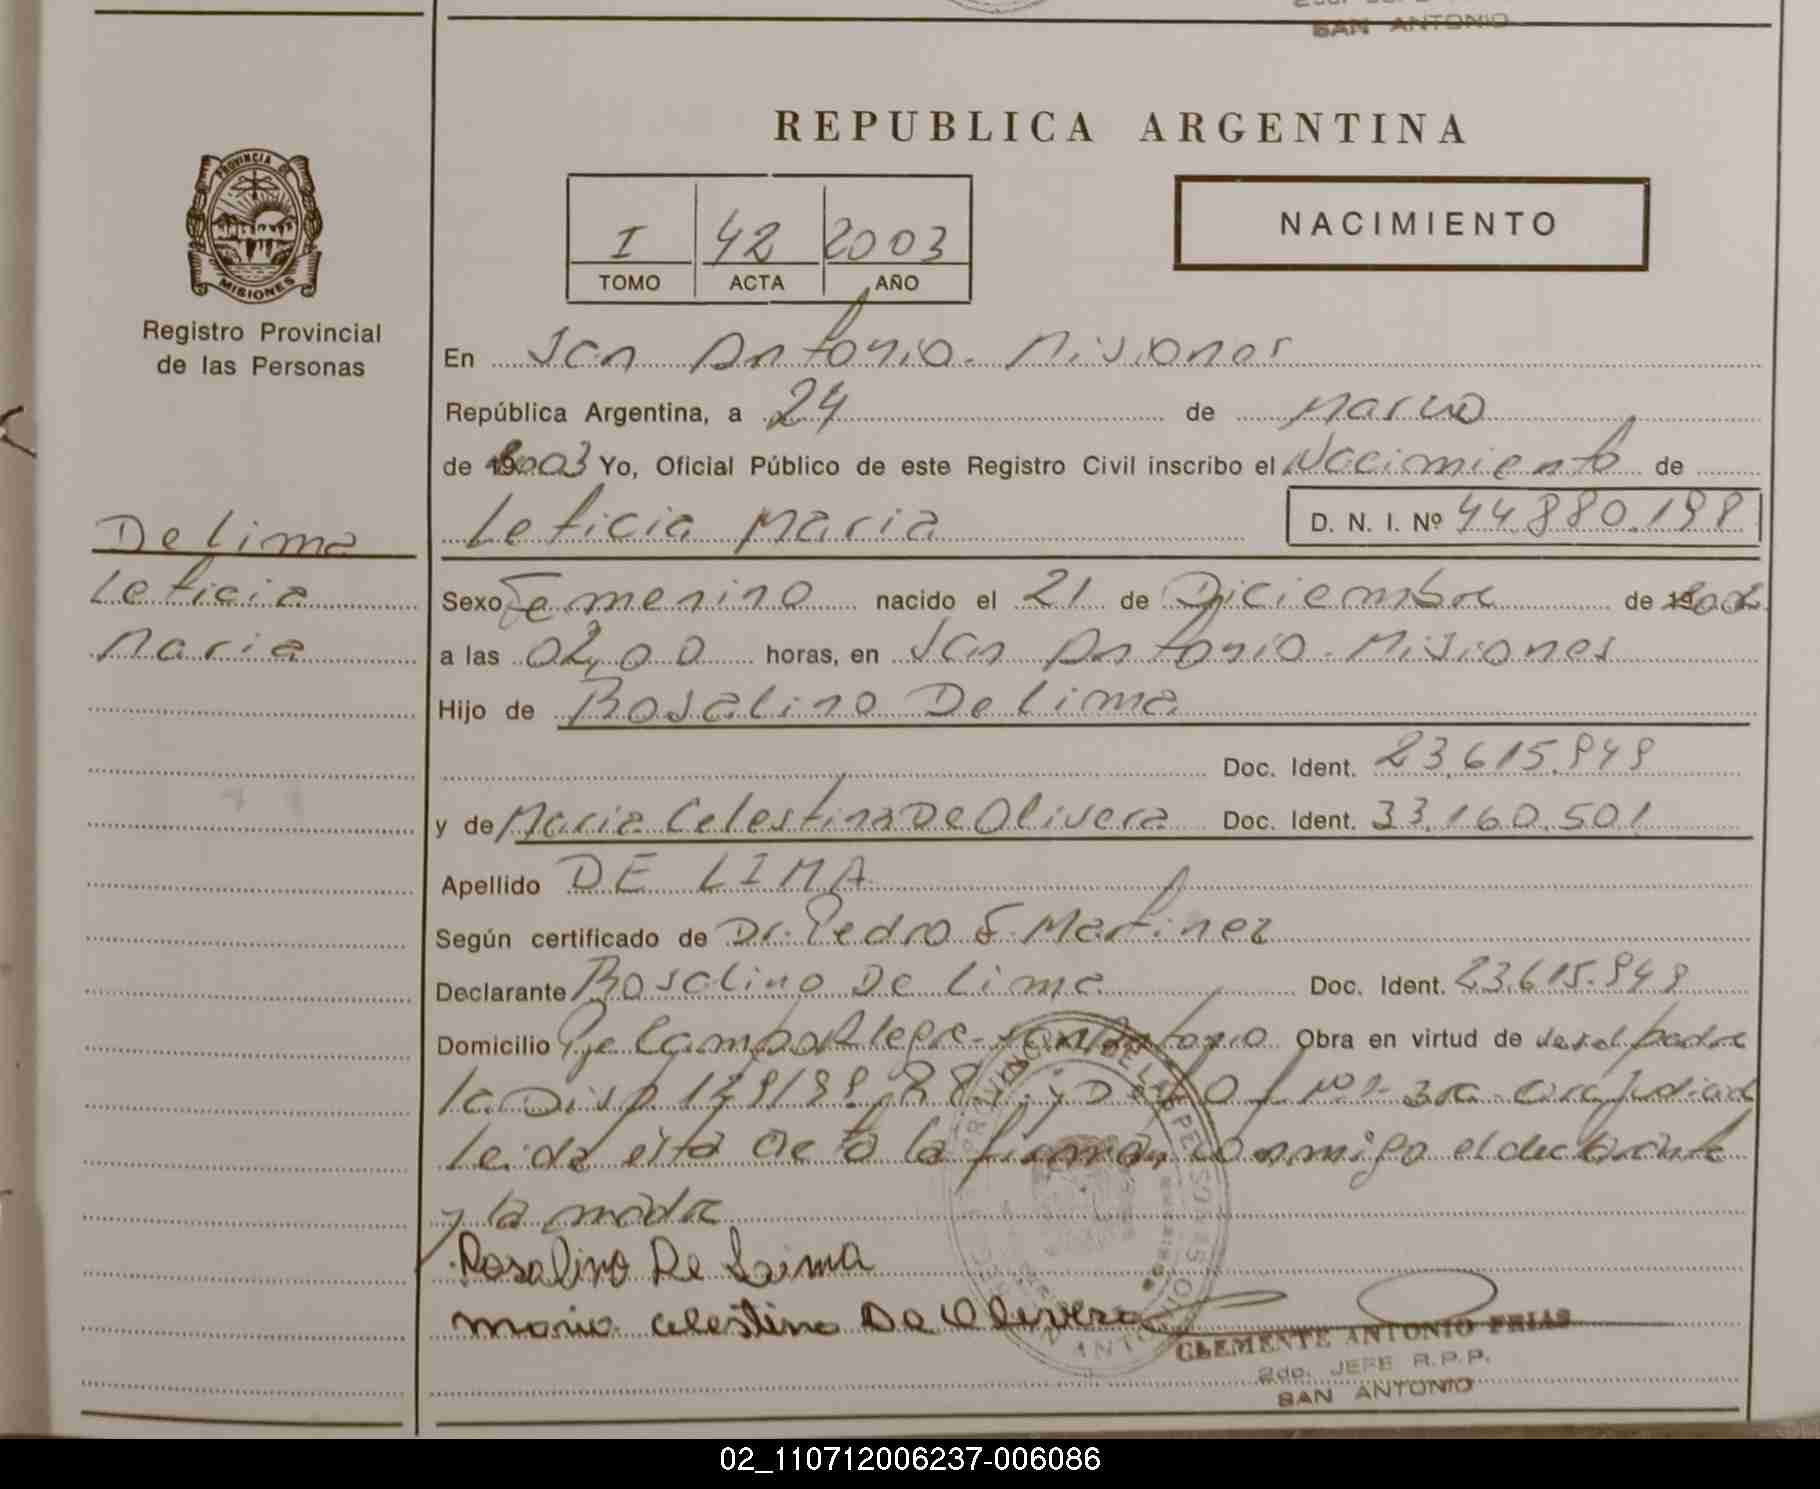 SAN ANTONIO
REPUBLICA ARGENTINA
PROVINCIA DE
MISIONES
Registro Provincial
de las Personas
I 42 2003
TOMO ACTA AÑO
NACIMIENTO
En San Antonio. Misiones
República Argentina, a 24 de Marzo
de 2003 Yo, Oficial Público de este Registro Civil inscribo el Nacimiento de
De lima
Leticia Maria D. N. I. Nº 44.880.198
Leticia
Maria
Sexo Femenino nacido el 21 de Diciembre de 2002
a las 02,00 horas, en San Antonio. Misiones
Hijo de Rosalino De lima
Doc. Ident. 23.615.949
y de Maria Celestina De Olivera Doc. Ident. 33.160.501
Apellido DE LIMA
Según certificado de Dr. Pedro Martinez
Declarante Rosalino De lima Doc. Ident. 23.615.949
Domicilio Pje Campo Alegre - San Antonio Obra en virtud de ser el padre
la Disp.
Leida esta acta la firman conmigo el declarante
y la madre
Rosalino De Lima
Maria Celestina De Olivera
CLEMENTE ANTONIO FRIAS
2do. JEFE R.P.P.
SAN ANTONIO
02_110712006237-006086